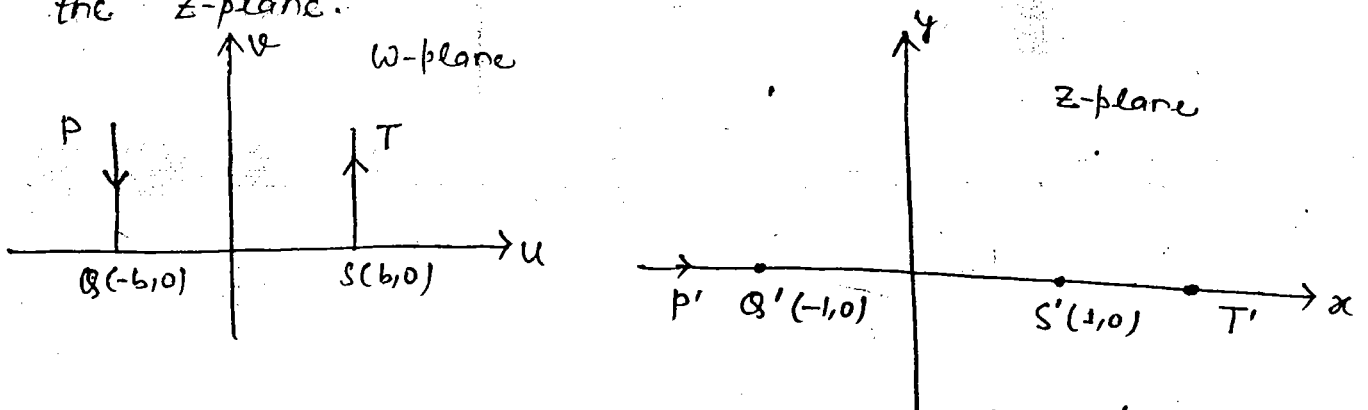 the z-plane.
v
W-plane
P
T
u
Q(-b,0)
S(b,0)
y
Z-plane
x
P'
Q'(-1,0)
S'(1,0)
T'